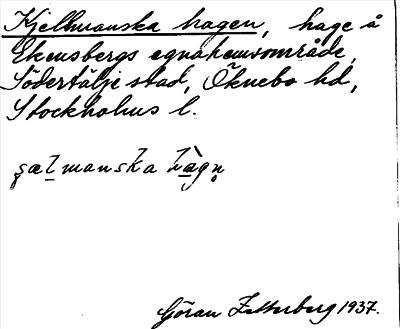 Kjellmanska hagen, hage å
Ekensbergs egnahemsområde,
Södertälje stad, Öknebo hd,
Stockholms l.
şælmanska hàgn̥
Göran Zetterberg 1937.